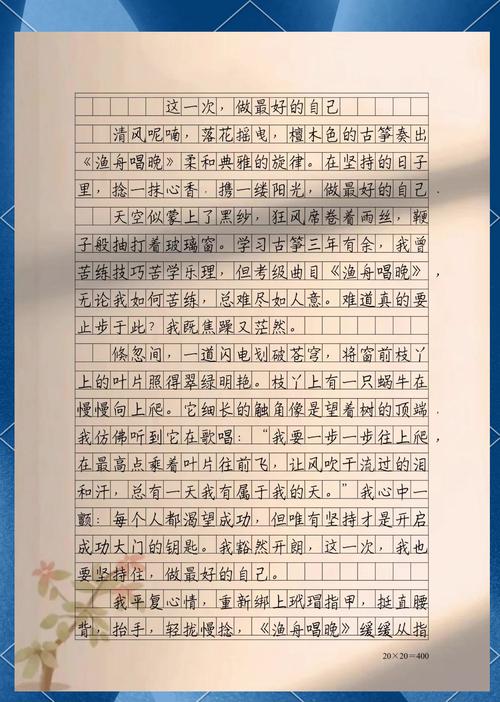 这一次，做最好的自己
清风呢喃，落花摇曳，檀木色的古筝奏出
《渔舟唱晚》柔和典雅的旋律。在坚持的日子
里，捻一抹心香，携一缕阳光，做最好的自己
天空似蒙上了黑纱，狂风席卷着雨丝，鞭
子般抽打着玻璃窗。学习古筝三年有余，我曾
苦练技巧苦学乐理，但考级曲目《渔舟唱晚》，
无论我如何苦练，总难尽如人意。难道真的要
止步于此？我既焦躁又茫然。
倏忽间，一道闪电划破苍穹，将窗前枝丫
上的叶片照得翠绿明艳。枝丫上有一只蜗牛在
慢慢向上爬。它细长的触角像是望着树的顶端
我仿佛听到它在歌唱：“我要一步一步往上爬，
在最高点乘着叶片往前飞，让风吹干流过的泪
和汗，总有一天我有属于我的天。”我心中一
颤：每个人都渴望成功，但唯有坚持才是开启
成功大门的钥匙。我豁然开朗，这一次，我也
要坚持住，做最好的自己。
我平复心情，重新绑上玳瑁指甲，挺直腰
背，抬手，轻拢慢捻，《渔舟唱晚》缓缓从指
20×20=400